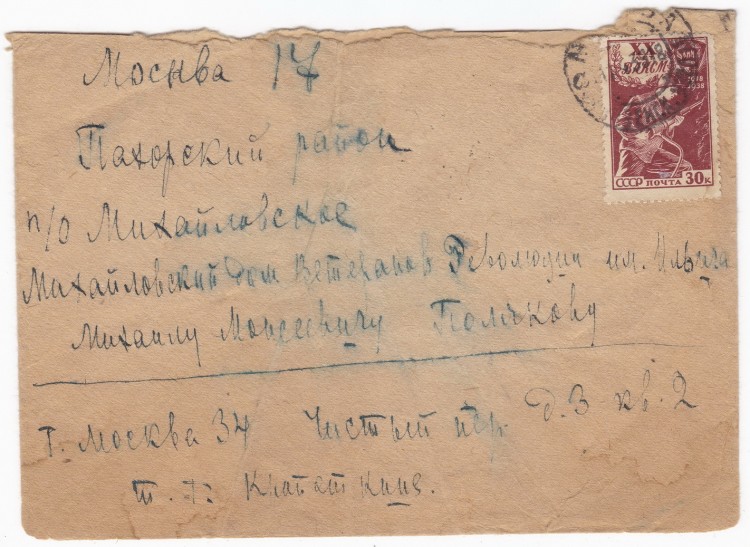 Москва 17
Пахорский район
п/о Михайловское
Михайловский Дом Ветеранов Революции им. Ильича
Михаилу Моисеевичу Полякову
г. Москва 34 Чистый пер. д. 3 кв. 2
XX
ВЛКСМ
1918
1938
СССР ПОЧТА 30 К